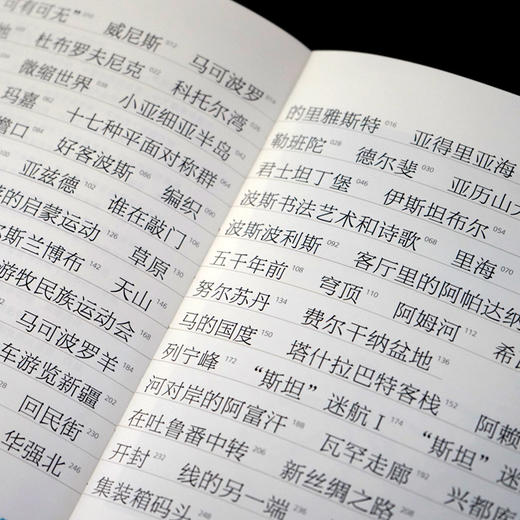 可有可无” 010 威尼斯 012 马可波罗 014
地 杜布罗夫尼克 022 科托尔湾
微缩世界 038 小亚细亚半岛
玛嘉 十七种平面对称群
好客波斯 086 编织 090
亚兹德 102 谁在敲门 106
的启蒙运动 126 草原 130
斯兰博布 142 天山
游牧民族运动会 168
马可波罗羊 184
车游览新疆
回民街 230
华强北 246
的里雅斯特 016 亚得里亚海
勒班陀 028 德尔斐 030 亚历山
君士坦丁堡 046 伊斯坦布尔 054
波斯书法艺术和诗歌 068 里海 070
波斯波利斯 092 客厅里的阿帕达纳
五千年前 108 穹顶 110 阿姆河 112 希
努尔苏丹 134 费尔干纳盆地 136
马的国度 150 塔什拉巴特客栈 152 阿赖
列宁峰 172 “斯坦”迷航Ⅰ 174 “斯坦”迷
河对岸的阿富汗 188 瓦罕走廊 192 兴都库
在吐鲁番中转 206 新丝绸之路 208
开封 232 线的另一端
集装箱码头 248